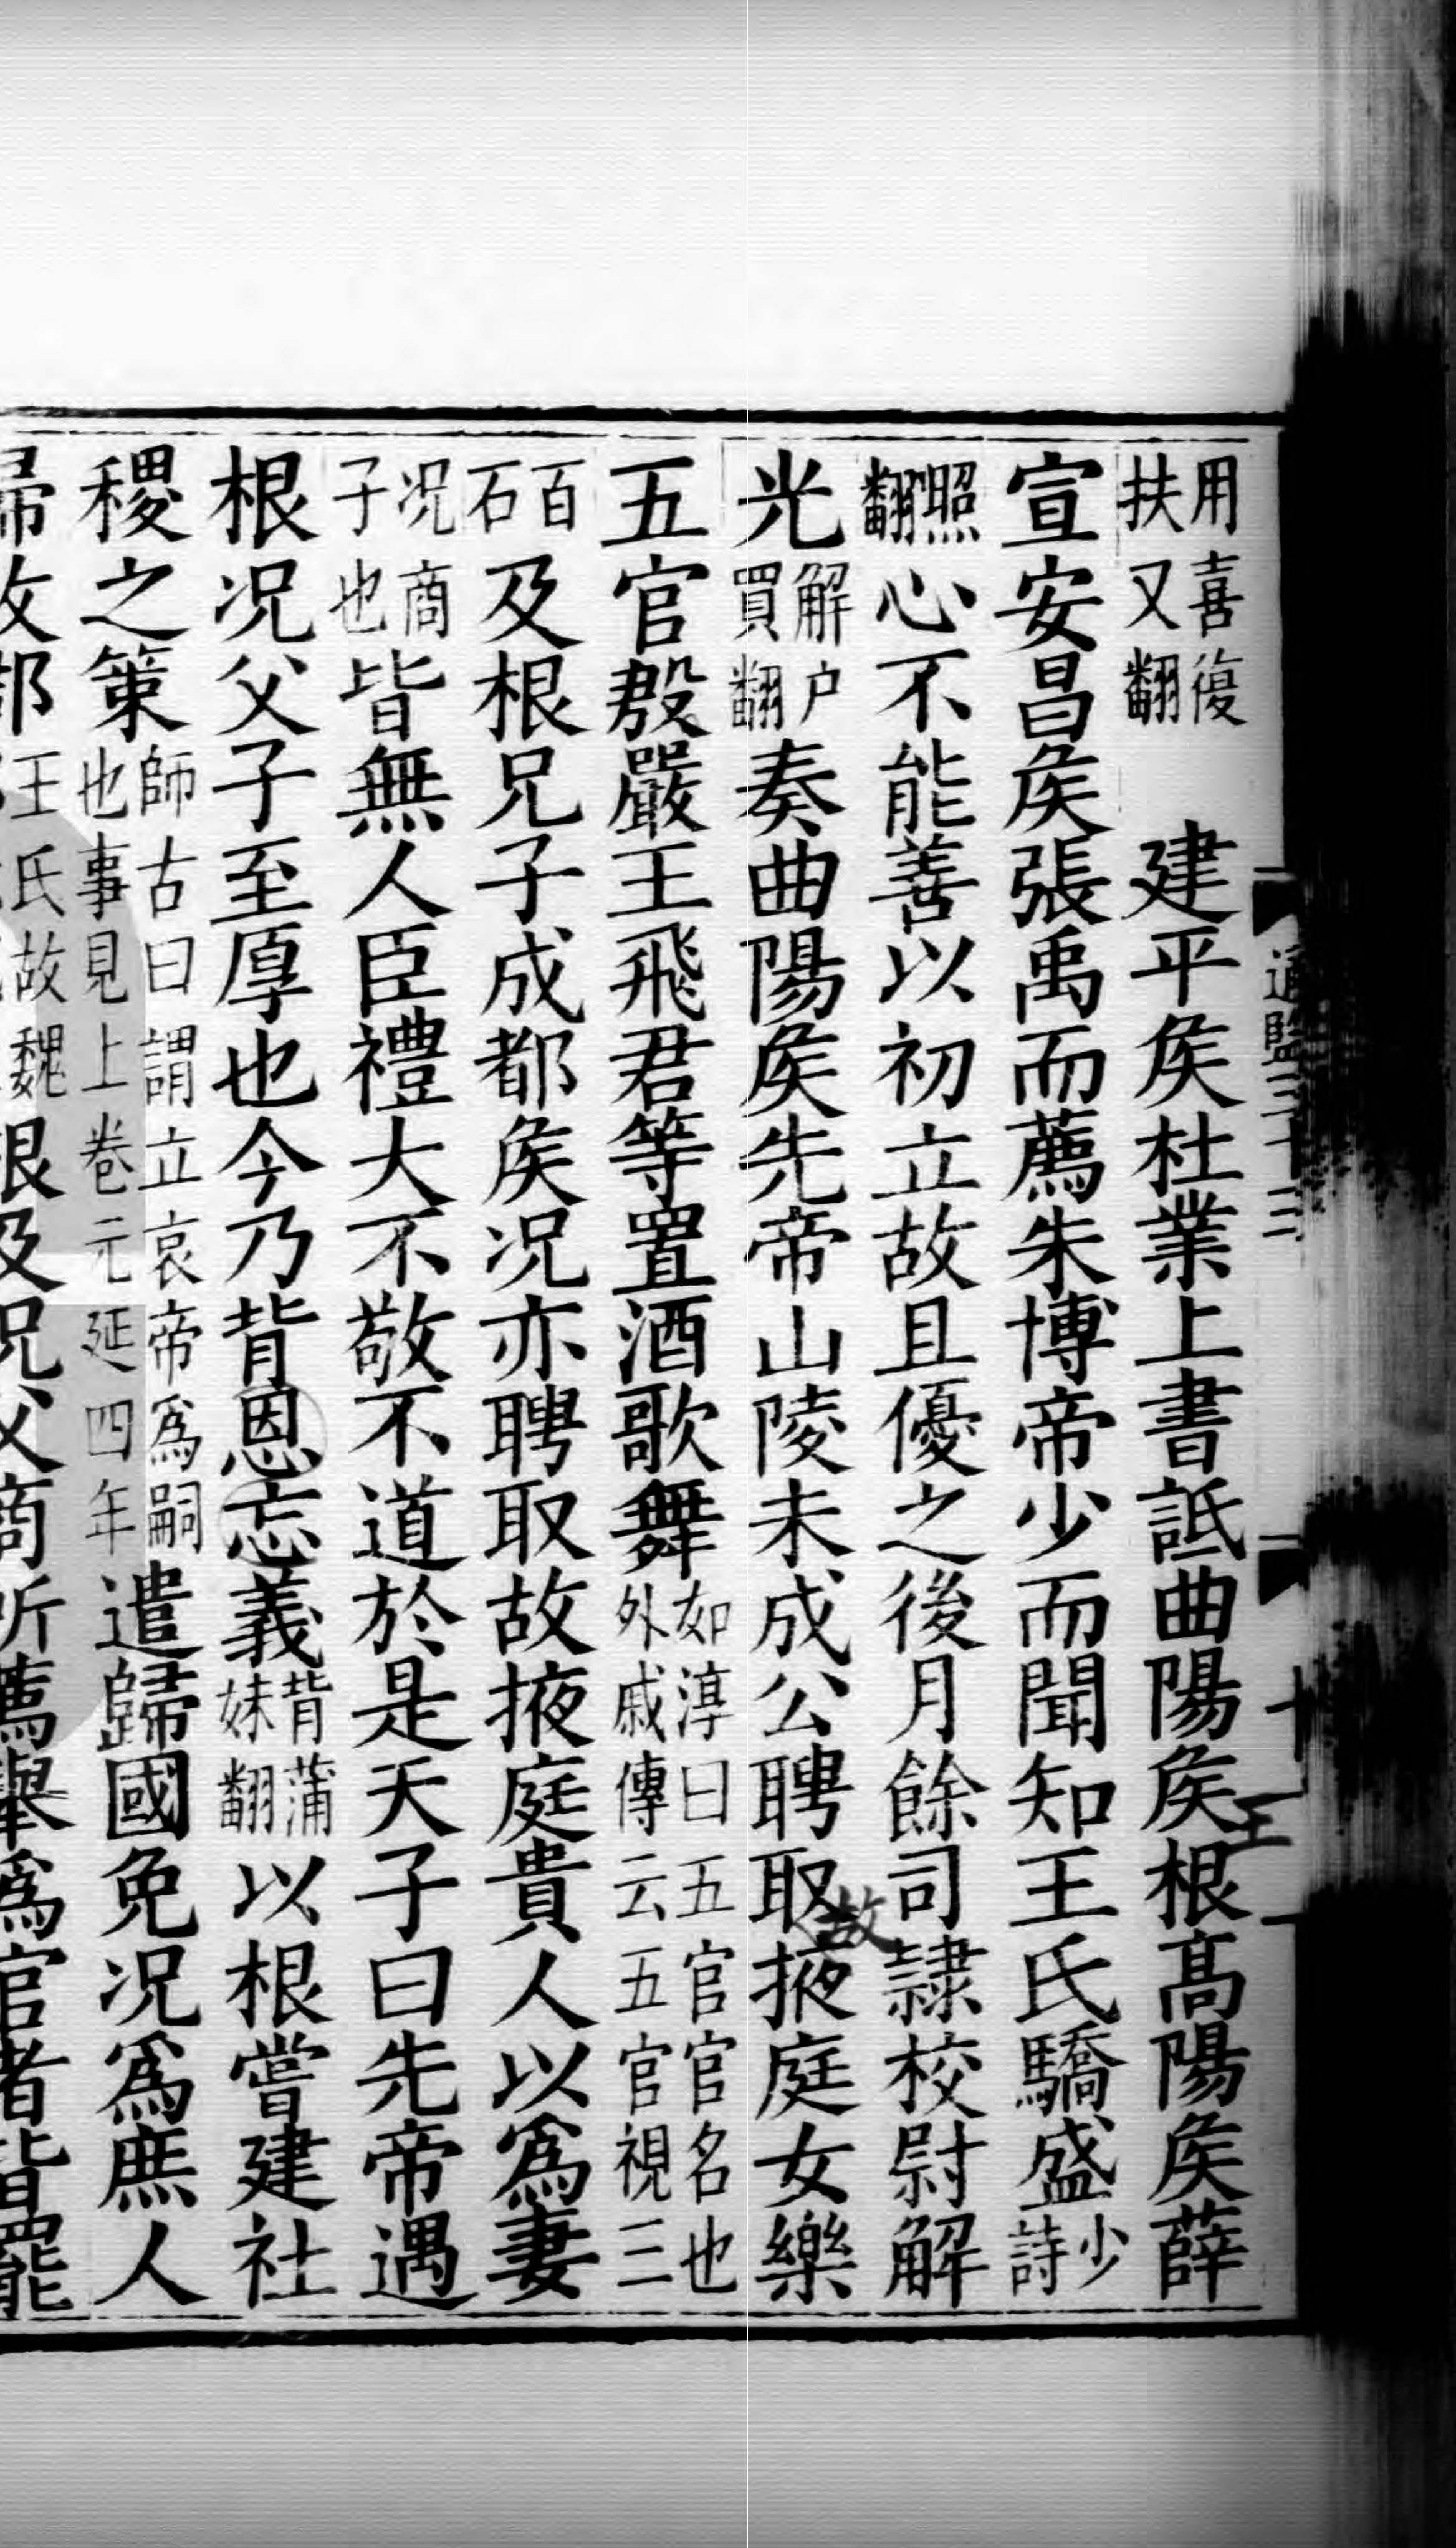 通鑑三十三
十
王
用喜復扶又翻 建平矦杜業上書詆曲陽矦根髙陽矦薛
宣安昌矦張禹而薦朱博帝少而聞知王氏驕盛少詩
照翻心不能善以初立故且優之後月餘司隷校尉解
光解户買翻奏曲陽矦先帝山陵未成公聘取故掖庭女樂
五官殷嚴王飛君等置酒歌舞如淳曰五官官名也外戚傳云五官視三
百石及根兄子成都矦况亦聘取故掖庭貴人以爲妻
况商子也皆無人臣禮大不敬不道於是天子曰先帝遇
根况父子至厚也今乃背恩忘義背蒲妹翻以根嘗建社
稷之策師古曰謂立哀帝爲嗣也事見上卷元延四年遣歸國免况爲庶人
歸故郡王氏故魏根及况父商所薦舉爲官者皆罷